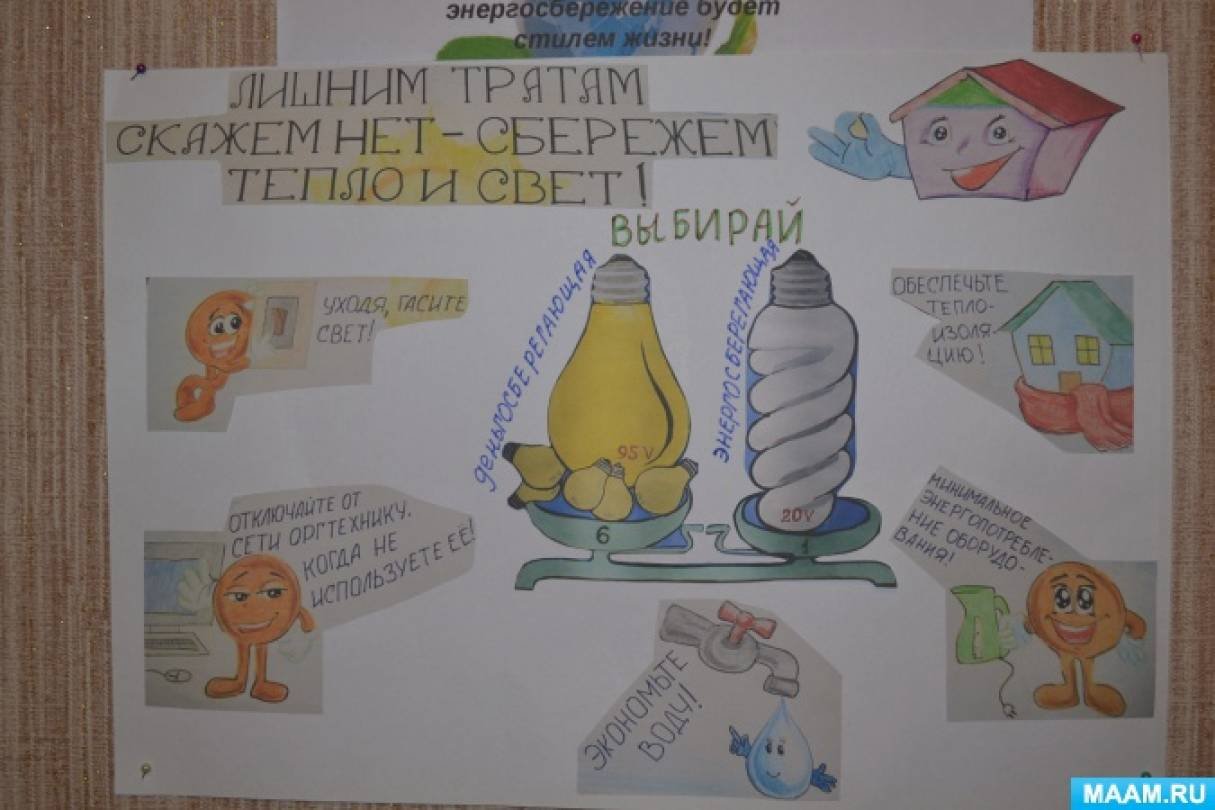 энергосбережение будет
стилем жизни!
ЛИШНИМ ТРАТАМ
СКАЖЕМ НЕТ - СБЕРЕЖЕМ
ТЕПЛО И СВЕТ!
ВЫБИРАЙ
деньгосберегающая
энергосберегающая
УХОДЯ, ГАСИТЕ
СВЕТ!
ОБЕСПЕЧЬТЕ
ТЕПЛО-
ИЗОЛЯ-
ЦИЮ!
95 V
20V
6
1
ОТКЛЮЧАЙТЕ ОТ
СЕТИ ОРГТЕХНИКУ.
КОГДА НЕ
ИСПОЛЬЗУЕТЕ ЕЁ!
МИНИМАЛЬНОЕ
ЭНЕРГОПОТРЕБЛЕ-
НИЕ ОБОРУДО-
ВАНИЯ!
ЭКОНОМЬТЕ
ВОДУ!
MAAM.RU